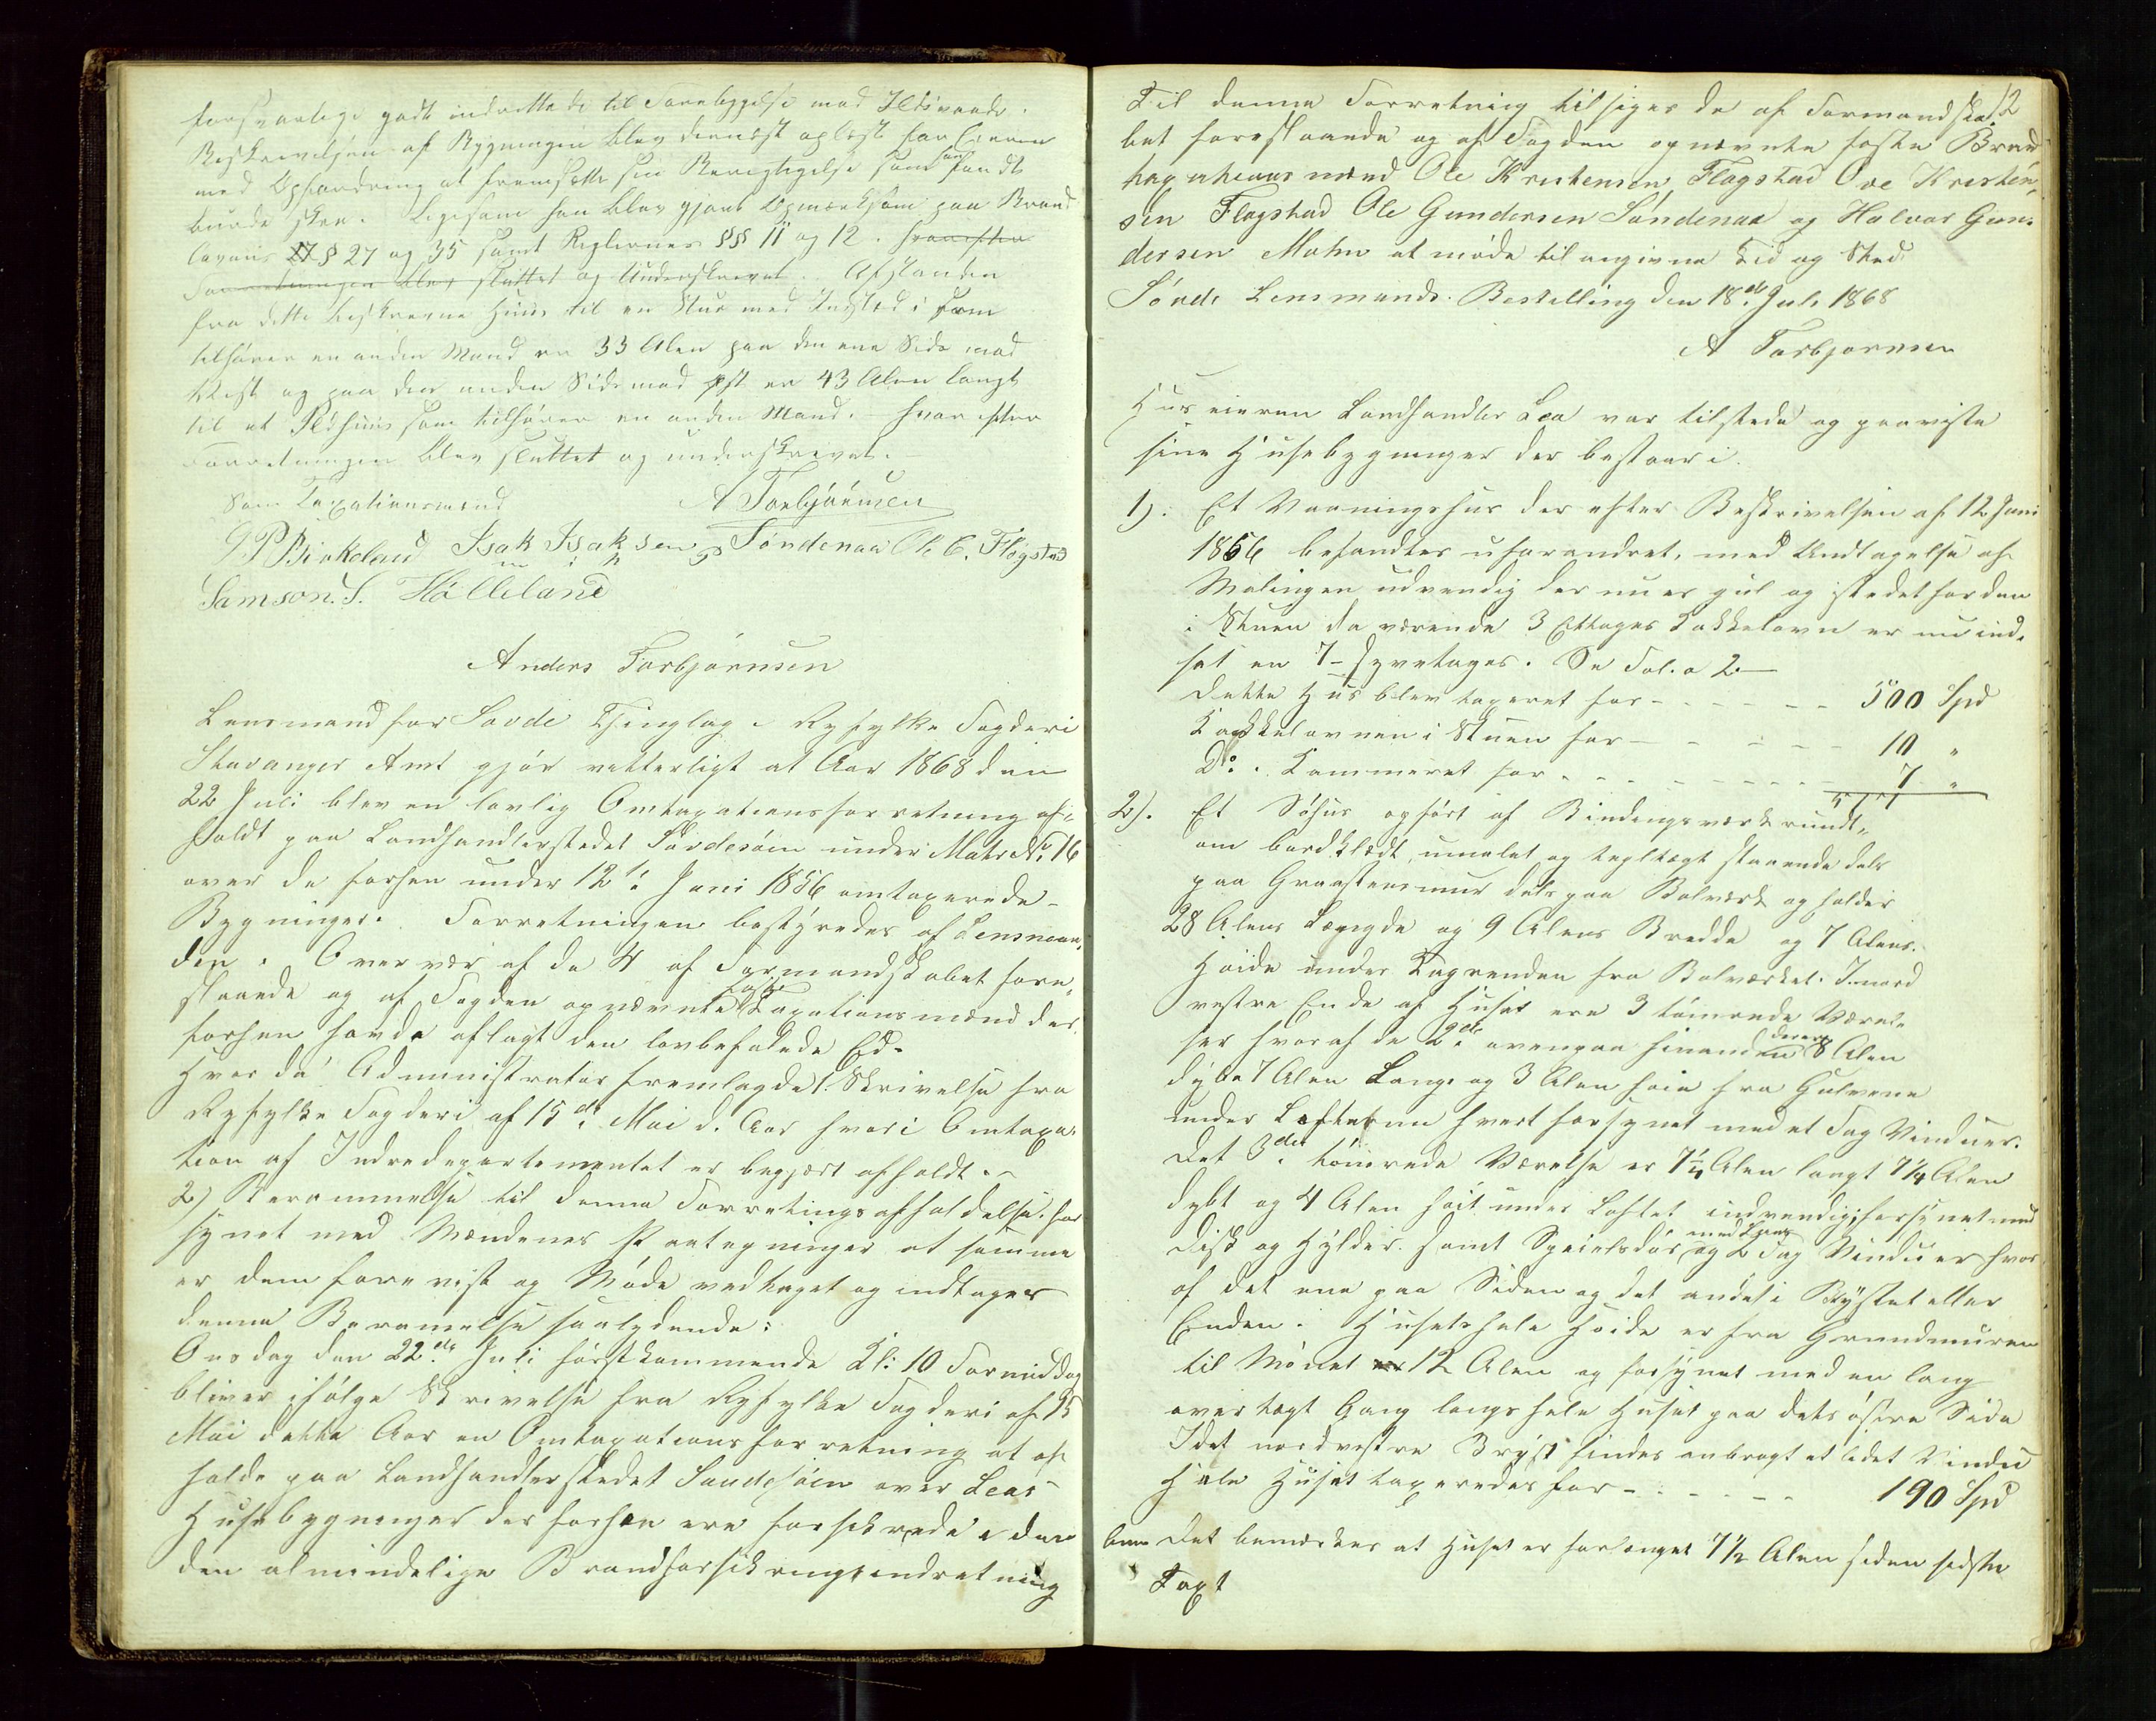 forsvarlige godt indrettede til Forebyggelse mod Ildsvaade.
Beskrivelsen af Bygningen blev dernæst oplæst for Eieren
med Opfordring at fremsætte sin Berigtigelse som han fandt
burde skee. Ligesom han blev gjort opmærksom paa Brand
lovens § 27 og 35 samt Reglernes §§§ 11 og 12. hvorefter
Forretningen blev sluttet og Underskrevet. Afstanden
fra dette beskrevne Huus til en Stue med Ildsted i som
tilhører en anden Mand er 33 Alen paa den ene Side mod
Vest og paa den anden Side mod Øst er 43 Alen langt
til et Ildhuus som tilhører en anden Mand. hvorefter
Forretningen blev sluttet og underskrevet.
Som Taxationsmænd A Torbjørnsen
P. Birkeland Isak Isaksen Søndenaa Ole C. Flogstad
m i h
Samson. S. Hølleland
Anders Torbjørnsen
Lensmand for Sovde Thinglag i Ryfylke Fogderi
Stavanger Amt gjør vitterligt at Aar 1868 den
22 Juli blev en lovlig Omtaxationsforretning af-
holdt paa Landhandlerstedet Søvdesøen under Matr No 16
over de forhen under 12te Juni 1856 omtaxerede
Bygninger. Forretningen bestyredes af Lensman-
den i Overvær af de 4 af Formandskabet fore-
slaaede og af Fogden opnævnte faste Taxationsmænd der
forhen havde aflagt den lovbefalede Ed.
Hvor da Administrator fremlagde 1. Skrivelse fra
Ryfylke Fogderi af 15de Mai d. Aar hvori Omtaxa-
tion af Indredepartementet er begjært afholdt.
2) Berammelse til denne Forretnings afholdelse. for
synet med Mændenes Paategninger at samme
er dem forevist og Møde vedtaget og indtages
denne Berammelse saalydende:
Onsdag den 22de Juli førstkommende Kl: 10 Formiddag
bliver ifølge Skrivelse fra Ryfylke Fogderi af 15
Mai dette Aar en Omtaxationsforretning at af-
holde paa Landhandlerstedet Saudesøen over Leas
Husebygninger der forhen ere forsikrede i den
den almindelige Brandforsikringsindretning
12
Til denne Forretning tilsiges de af Formandska-
bet foreslaaede og af Fogden opnævnte faste Brand
taxationsmænd Ole Kristensen Flogstad Ove Kristen-
sen Flogstad Ole Gundersen Søndenaa og Halvor Gun-
dersen Mohn at møde til angivne Tid og Sted
Søvde Lensmands Bestilling den 18de Juli 1868
A Torbjørnsen
Huseieren Landhandler Lea var tilstede og paaviste
sine Husebygninger der bestaar i
1). Et Vaaningshus der efter Beskrivelsen af 12 Juni
1856 befandtes uforandret, med Undtagelse af
Malingen udvendig der nu er gul og istedetfor den
i Stuen da værende 3 Ettages Kakkelovn er nu ind-
sat en 7- syvetages. Se Fol. a 2
dette Hus blev taxeret for - - - - - - 500 Spd
Kakkelovnen i Stuen for - - - - - 10 "
Do i Kammeret for - - - - - - - 7 "
517
2). Et Søhus opført af Bindingsværk rundt-
om bordklædt, umalet og tegltægt staaende dels
paa Graastensmur dels paa Bolværk og holder
28 Alens Længde og 9 Alens Bredde og 7 Alens
Høide under Tagrenden fra Bolværket. I nord
vestre Ende af Huset ere 3 tømrede Værel-
ser hvoraf de 2de ovenpaa hinanden der ere 8 Alen
dybe 7 Alen Lange og 3 Alen høie fra Gulvene
under Lofterne hvert forsynet med et Fag Vinduer.
det 3die tømrede Værelse er 7 1/4 Alen langt 7 1/4 Alen
dybt og 4 Alen høit under Loftet indvendig, forsynet med
Disk og Hylder. samt Speielsdør og 2 Fag Vinduer hvor
af det ene paa Siden og det andet i Brystet eller
Enden. Husets hele Høide er fra Grundmuren
til Mønet 12 Alen og forsynet med en lang
overtægt Gang langs hele Huset paa dets østre Side
I det nordvestre Bryst findes anbragt et lidet Vindu
Hele Huset taxeredes for - - - - - - 190 Spd
Det bemærkes at Huset er forlænget 7 1/2 Alen siden sidste
Taxt